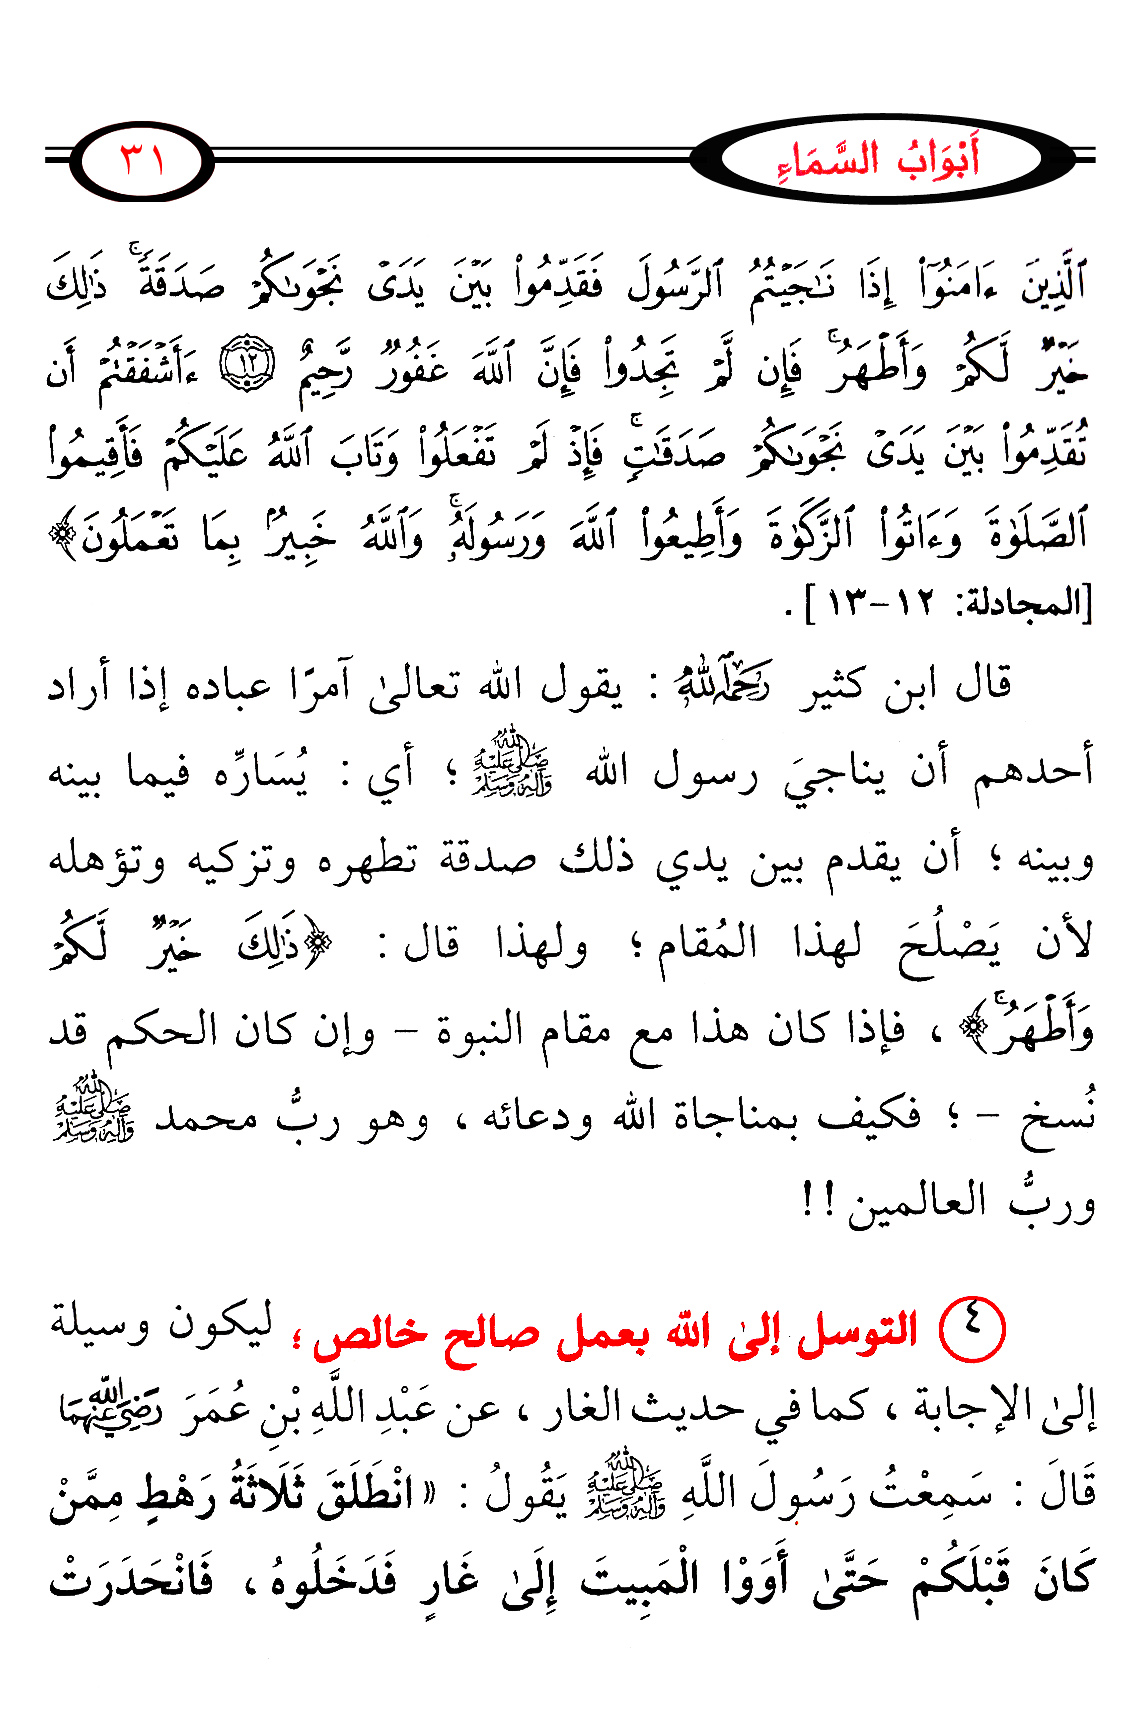 أَبْوَابُ السَّمَاءِ
٣١
ٱلَّذِينَ ءَامَنُوٓا۟ إِذَا نَـٰجَيْتُمُ ٱلرَّسُولَ فَقَدِّمُوا۟ بَيْنَ يَدَىْ نَجْوَىٰكُمْ صَدَقَةً ۚ ذَٰلِكَ
خَيْرٌ لَّكُمْ وَأَطْهَرُ ۚ فَإِن لَّمْ تَجِدُوا۟ فَإِنَّ ٱللَّهَ غَفُورٌ رَّحِيمٌ ١٢ ءَأَشْفَقْتُمْ أَن
تُقَدِّمُوا۟ بَيْنَ يَدَىْ نَجْوَىٰكُمْ صَدَقَـٰتٍ ۚ فَإِذْ لَمْ تَفْعَلُوا۟ وَتَابَ ٱللَّهُ عَلَيْكُمْ فَأَقِيمُوا۟
ٱلصَّلَوٰةَ وَءَاتُوا۟ ٱلزَّكَوٰةَ وَأَطِيعُوا۟ ٱللَّهَ وَرَسُولَهُۥ ۚ وَٱللَّهُ خَبِيرٌۢ بِمَا تَعْمَلُونَ﴾
[المجادلة: ١٢-١٣].
قال ابن كثير رَحِمَهُ اللَّهُ : يقول الله تعالىٰ آمرًا عباده إذا أراد
أحدهم أن يناجيَ رسول الله ﷺ ؛ أي : يُسَارِّه فيما بينه
وبينه ؛ أن يقدم بين يدي ذلك صدقة تطهره وتزكيه وتؤهله
لأن يَصْلُحَ لهذا المُقام ؛ ولهذا قال : ﴿ذَٰلِكَ خَيْرٌ لَّكُمْ
وَأَطْهَرُ ۚ﴾ ، فإذا كان هذا مع مقام النبوة - وإن كان الحكم قد
نُسخ - ؛ فكيف بمناجاة الله ودعائه ، وهو ربُّ محمد ﷺ
وربُّ العالمين !!
٤ التوسل إلىٰ الله بعمل صالح خالص ؛ ليكون وسيلة
إلىٰ الإجابة ، كما في حديث الغار ، عن عَبْدِ اللَّهِ بْنِ عُمَرَ رَضِيَ اللَّهُ عَنْهُمَا
قَالَ : سَمِعْتُ رَسُولَ اللَّهِ ﷺ يَقُولُ : «انْطَلَقَ ثَلَاثَةُ رَهْطٍ مِمَّنْ
كَانَ قَبْلَكُمْ حَتَّىٰ أَوَوْا الْمَبِيتَ إِلَىٰ غَارٍ فَدَخَلُوهُ ، فَانْحَدَرَتْ